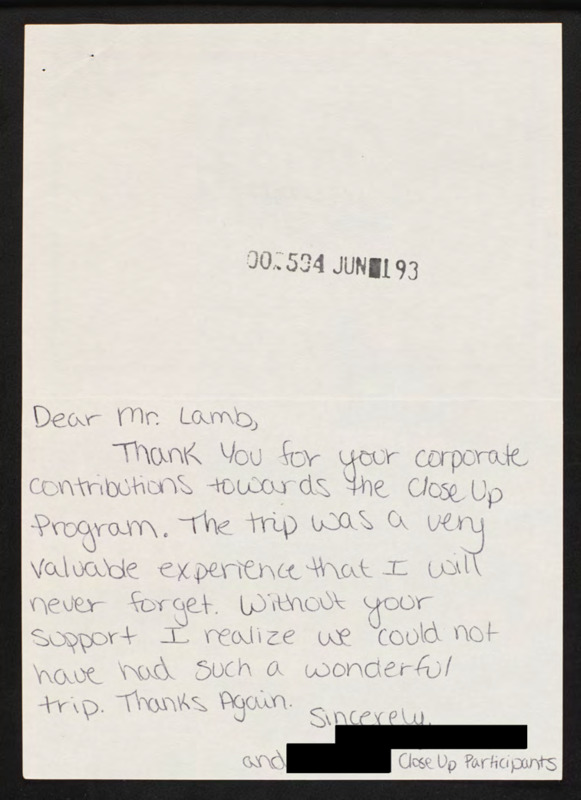 JUN 1 93
Dear Mr. Lamb,
Thank You for your corporate
contributions towards the Close Up
Program. The trip was a very
valuable experience that I will
never forget. Without your
support I realize we could not
have had such a wonderful
trip. Thanks Again.
Sincerely,
and Close Up Participants